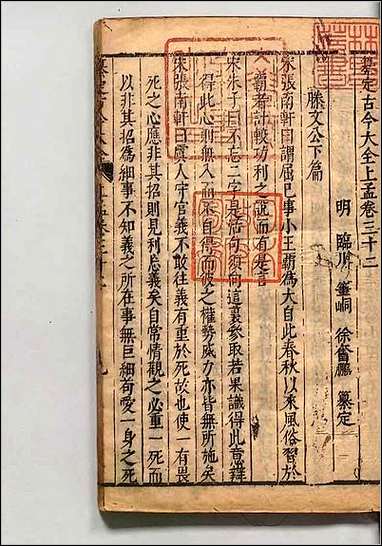 纂定古今大全上孟卷三十二
明 臨川 筆峒 徐奮鵬 纂定
滕文公下篇
宋張南軒曰謂屈己事小王霸為大自此春秋以來風俗習於
霸者計較功利之說而有是言
宋朱子曰不忘二字是活句須向這裏參取若果識得此意辨
得此心則無入而不自得而彼之權勢威力亦皆無所施矣
宋張南軒曰虞人守官義不敢往義有重於死故也使一有畏
死之心應非其招則見利忘義矣自常情觀之必重一死而
以非其招為細事不知義之所在事無巨細苟愛一身之死